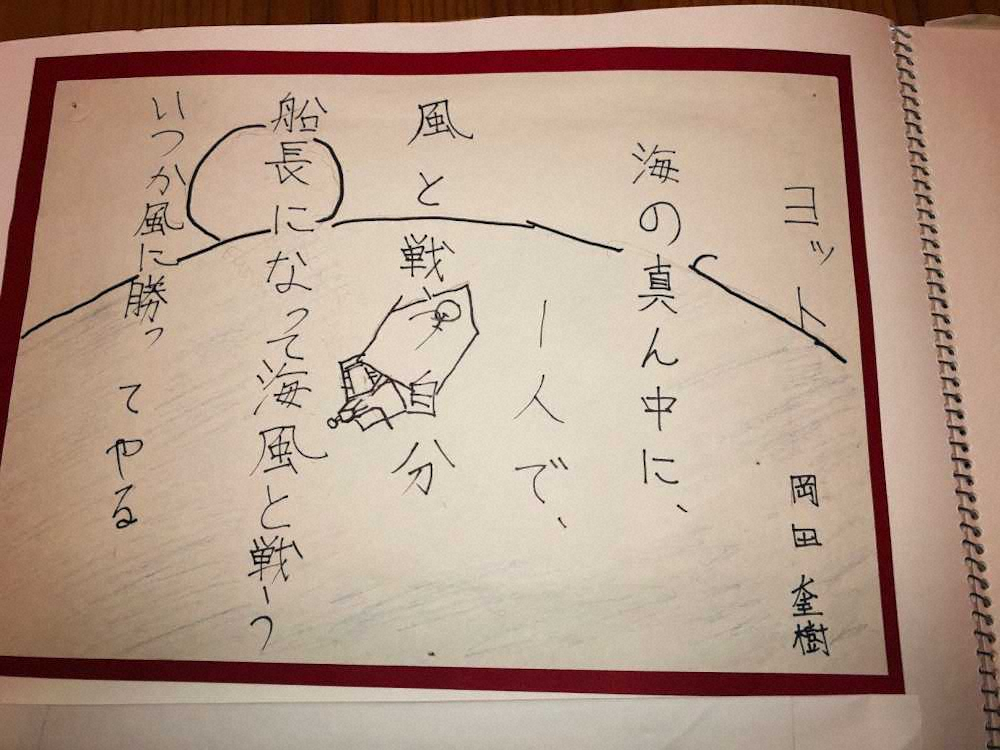 ヨット
岡田 奎樹
海の真ん中に、
一人で、
風と戦う自分
船長になって海風と戦う
いつか風に勝ってやる